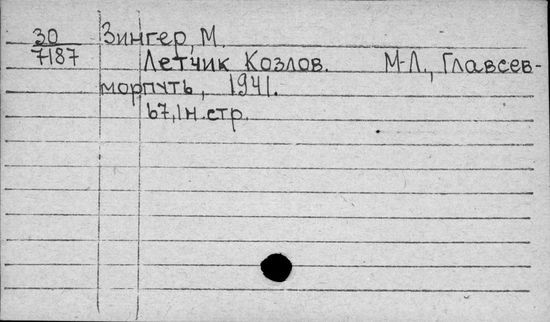 30 Зингер, М.
7187 Летчик Козлов. М-Л., Главсев-
морпуть, 1941.
67, 1 н. стр.